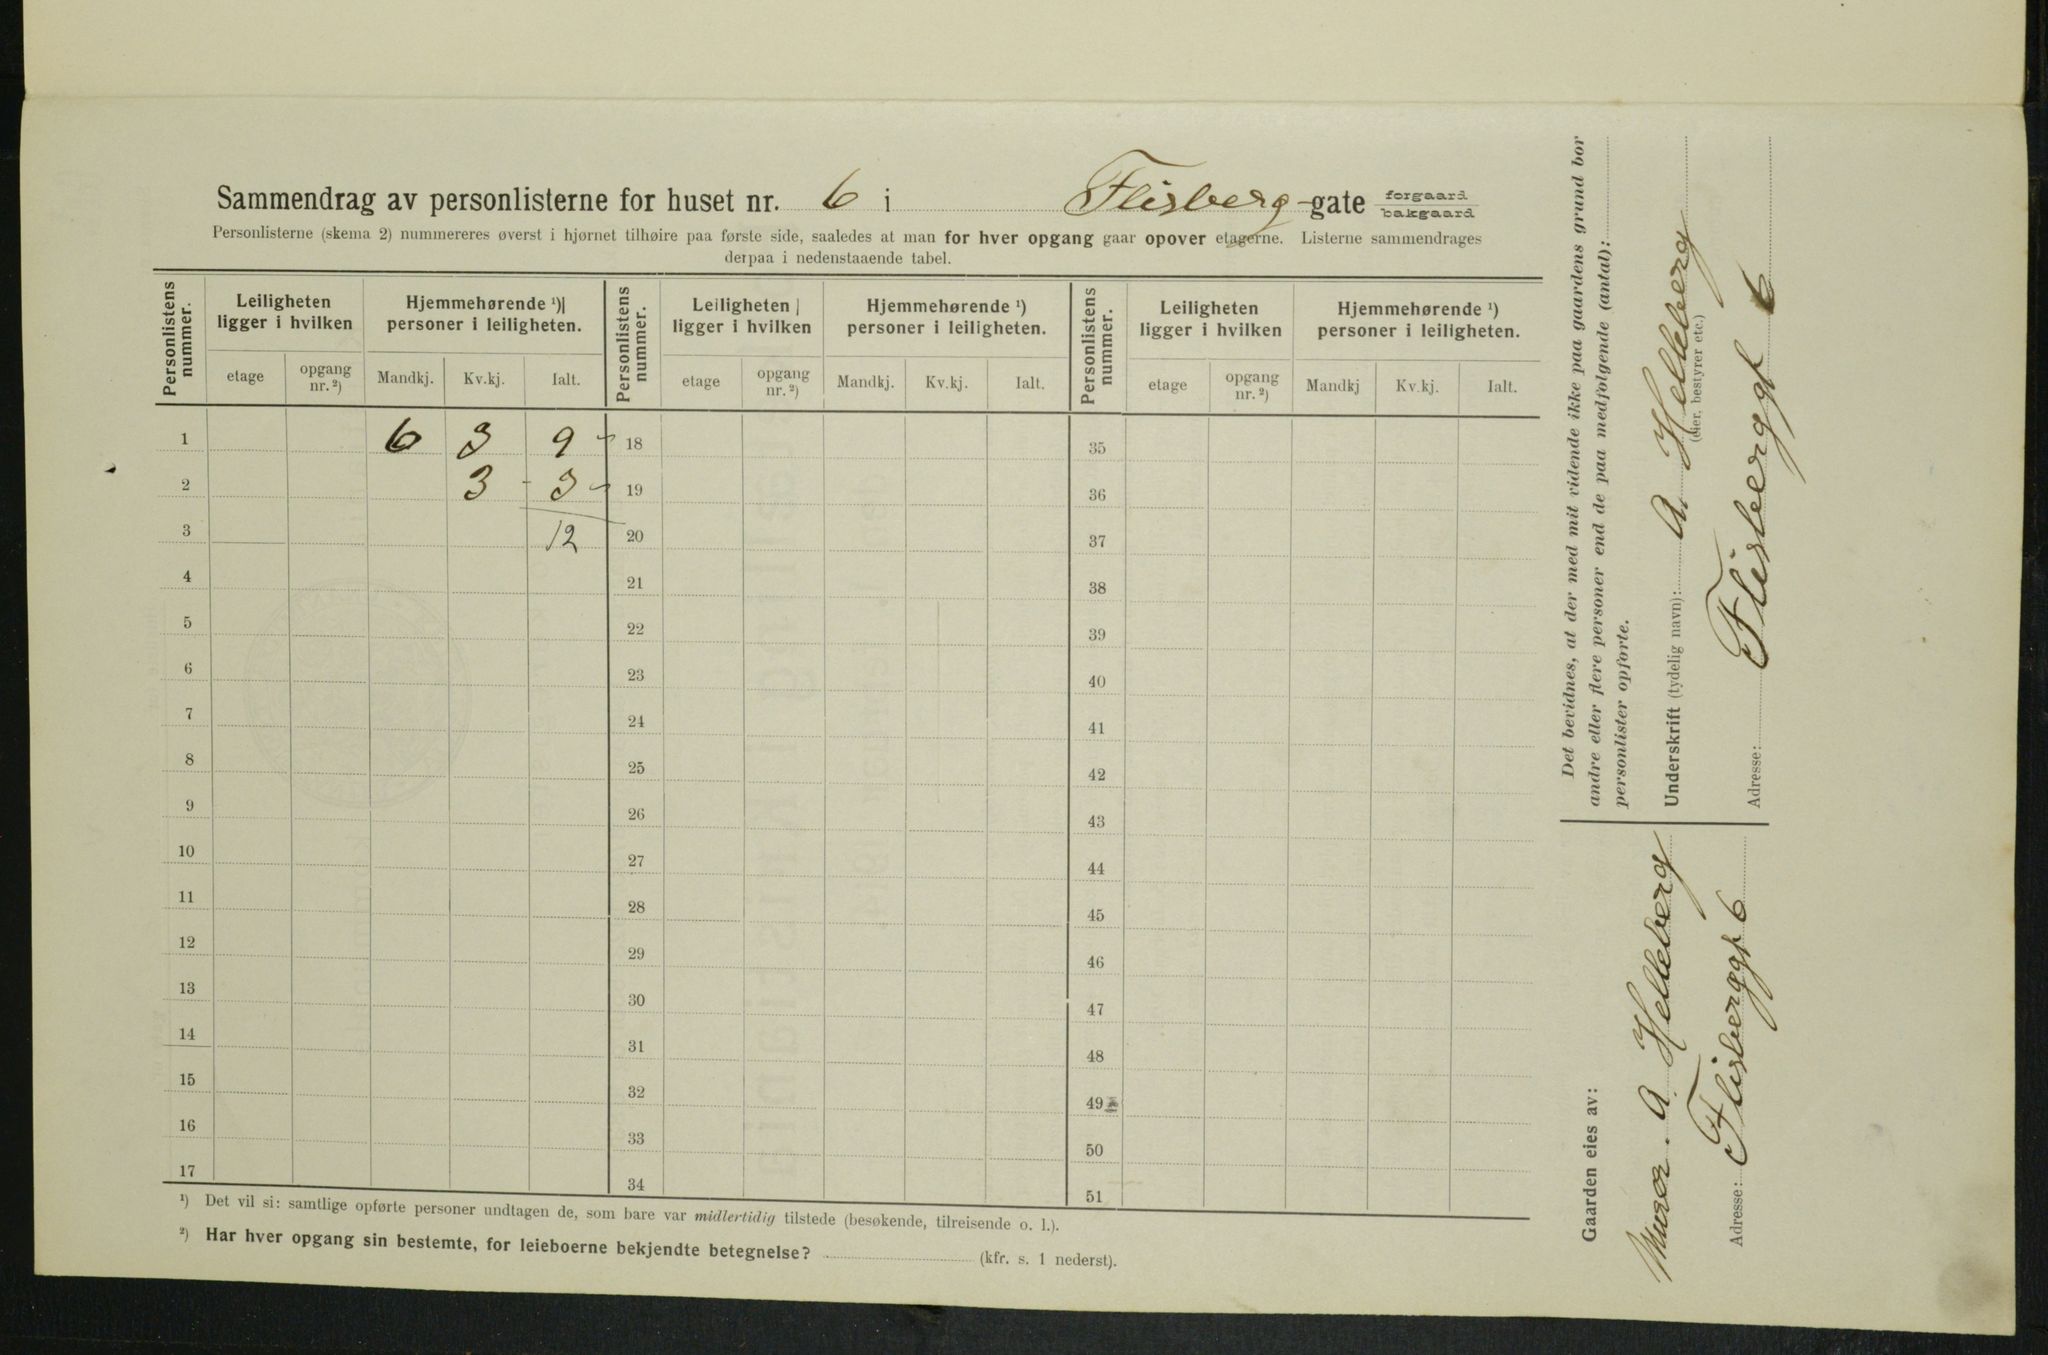 Sammendrag av personlisterne for huset nr. 6 i Flisberg-gate forgaard bakgaard
Personlisterne (skema 2) nummereres øverst i hjørnet tilhøire paa første side, saaledes at man for hver opgang gaar opover etagerne. Listerne sammendrages
derpaa i nedenstaaende tabel.
Personlistens nummer. Leiligheten ligger i hvilken Hjemmehørende ¹) personer i leiligheten. Personlistens nummer. Leiligheten ligger i hvilken Hjemmehørende ¹) personer i leiligheten. Personlistens nummer. Leiligheten ligger i hvilken Hjemmehørende ¹) personer i leiligheten.
etage opgang nr. ²) Mandkj. Kv.kj. Ialt. etage opgang nr. ²) Mandkj. Kv.kj. Ialt. etage opgang nr. ²) Mandkj Kv.kj. Ialt.
1 6 3 9 18 35
2 3 - 3 19 36
3 12 20 37
4 21 38
5 22 39
6 23 40
7 24 41
8 25 42
9 26 43
10 27 44
11 28 45
12 29 46
13 30 47
14 31 48
15 32 49
16 33 50
17 34 51
¹) Det vil si: samtlige opførte personer undtagen de, som bare var midlertidig tilstede (besøkende, tilreisende o. l.).
²) Har hver opgang sin bestemte, for leieboerne bekjendte betegnelse? (kfr. s. 1 nederst).
Det bevidnes, at der med mit vidende ikke paa gaardens grund bor
andre eller flere personer end de paa medfølgende (antal):
personlister opførte.
Underskrift (tydelig navn): A. Helleberg
(eier, bestyrer etc.)
Adresse: Flisberggt 6
Gaarden eies av:
Murer. A. Helleberg
Adresse: Flisberggt 6